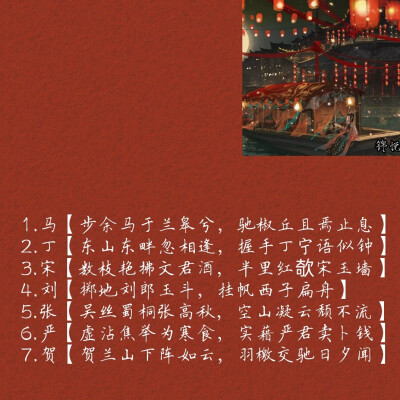 锦
1.马【步余马于兰皋兮，驰椒丘且焉止息】
2.丁【东山东畔忽相逢，握手丁宁语似钟】
3.宋【数枝艳拂文君酒，半里红欹宋玉墙】
4.刘【掷地刘郎玉斗，挂帆西子扁舟】
5.张【吴丝蜀桐张高秋，空山凝云颓不流】
6.严【虚沾焦举为寒食，实藉严君卖卜钱】
7.贺【贺兰山下阵如云，羽檄交驰日夕闻】